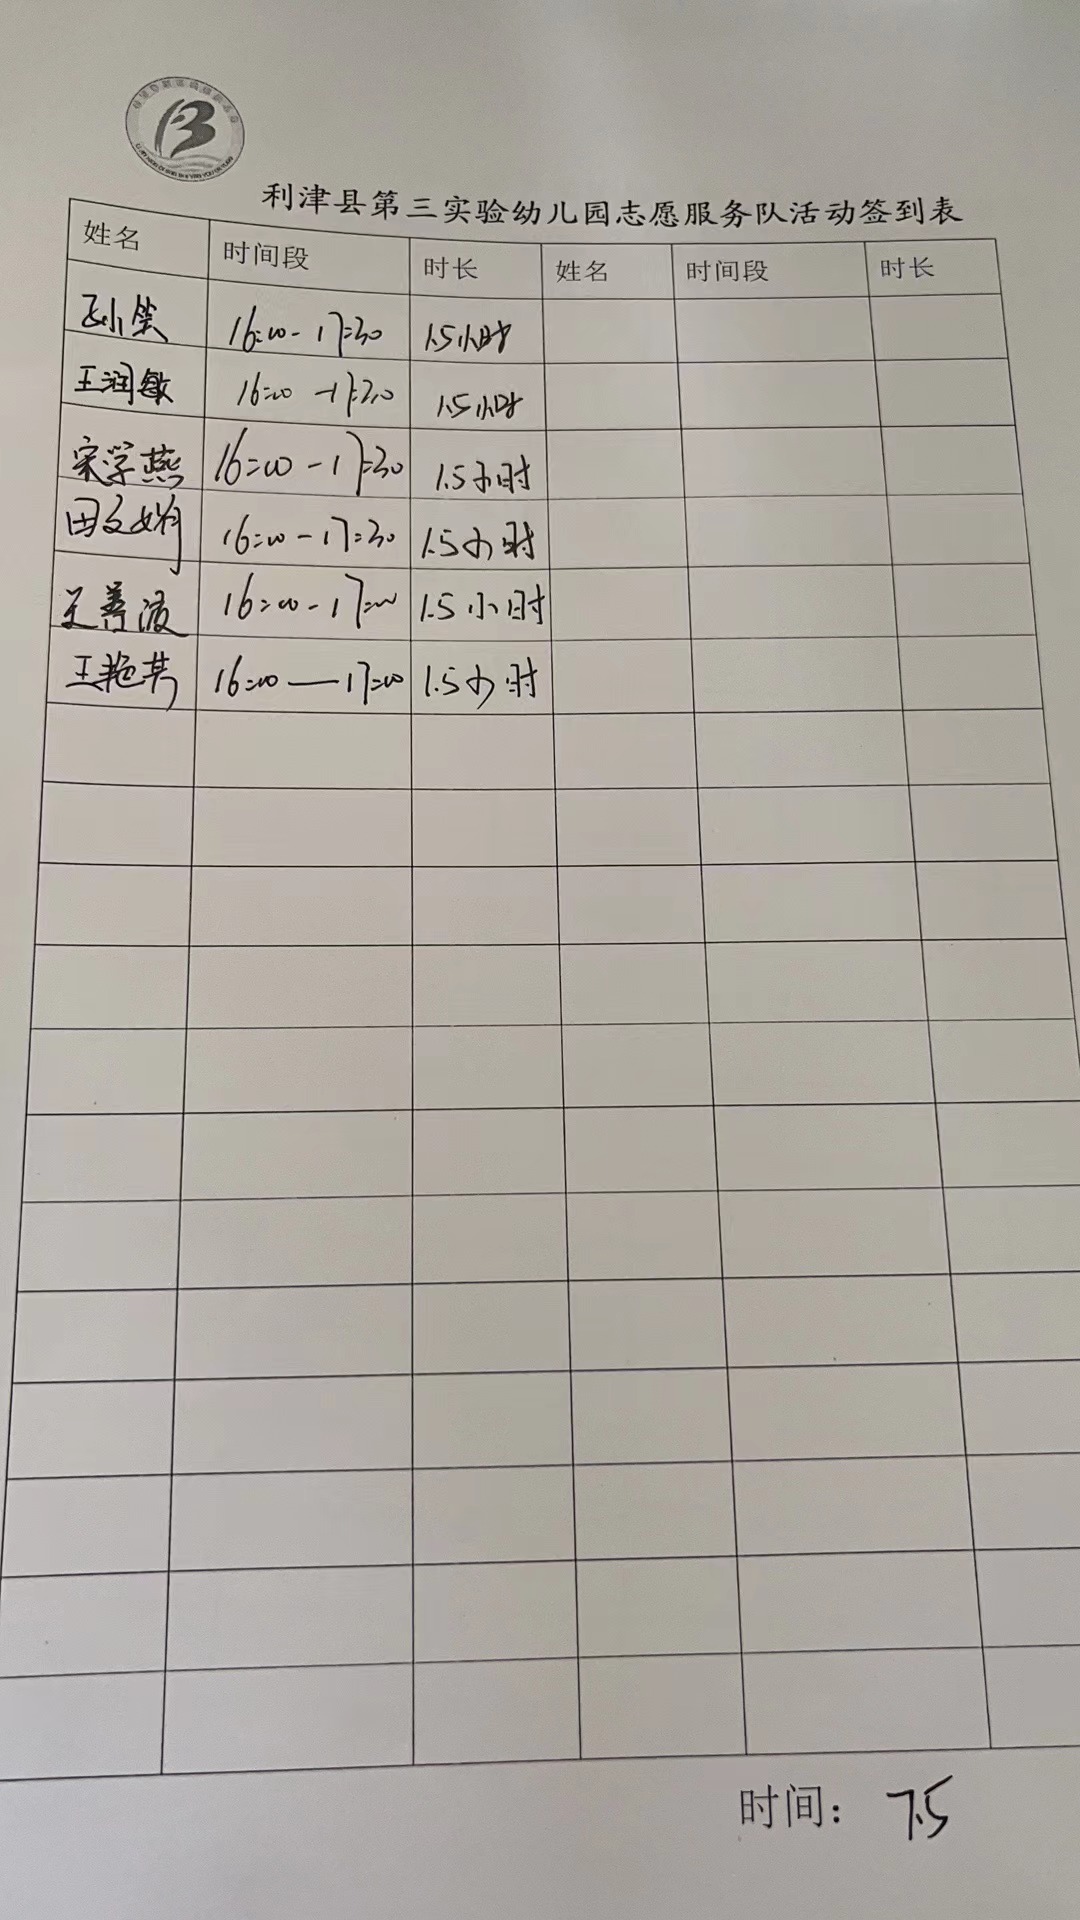 利津县第三实验幼儿园志愿服务队活动签到表
姓名 时间段 时长 姓名 时间段 时长
16:00-17:30 1.5小时
王润敏 16:00-17:30 1.5小时
宋学燕 16:00-17:30 1.5小时
田文娟 16:00-17:30 1.5小时
王善波 16:00-17:00 1.5小时
王艳芳 16:00—17:00 1.5小时
时间：7.5